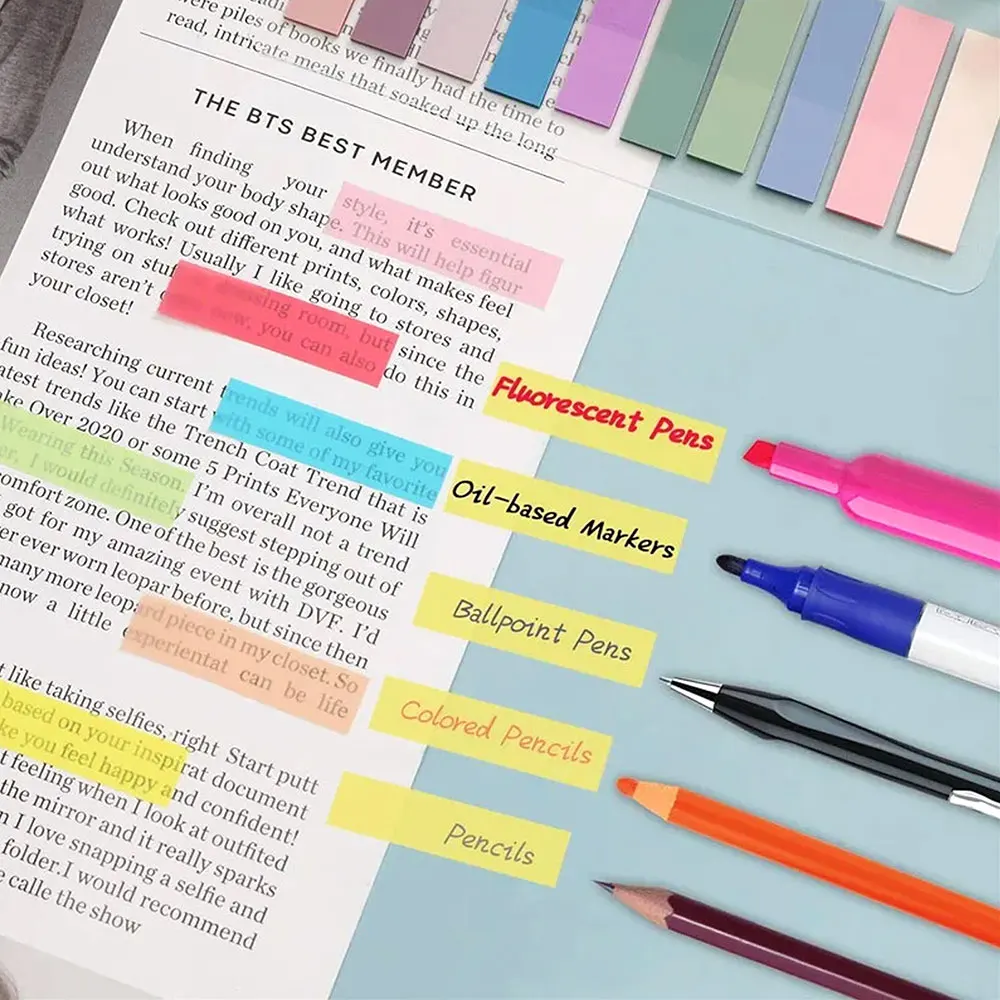 were piles of books we finally had the time to
read, intricate meals that soaked up the long
THE BTS BEST MEMBER
When finding your style, it's essential
understand your body shape. This will help figur
out what looks good on you, and what makes feel
good. Check out different prints, colors, shapes,
what works! Usually I like going to stores and
trying on stuf dressing room, but since the
stores aren't now, you can also do this in
your closet!
Researching current trends will also give you
fun ideas! You can start with some of my favorite
atest trends like the Trench Coat Trend that is
ke Over 2020 or some 5 Prints Everyone Will
Wearing this Season. I'm overall not a trend
er, I would definitely suggest stepping out of
omfort zone. One of the best is the gorgeous
got for my amazing event with DVF. I'd
er ever worn leopar before, but since then
many more leopard piece in my closet. So
now a little experientat can be life
t like taking selfies, right Start putt
based on your inspirat document
ke you feel happy and confident!
t feeling when I look at outfited
the mirror and it really sparks
n I love snapping a selfie and
folder.I would recommend
e calle the show
Fluorescent Pens
Oil-based Markers
Ballpoint Pens
Colored Pencils
Pencils